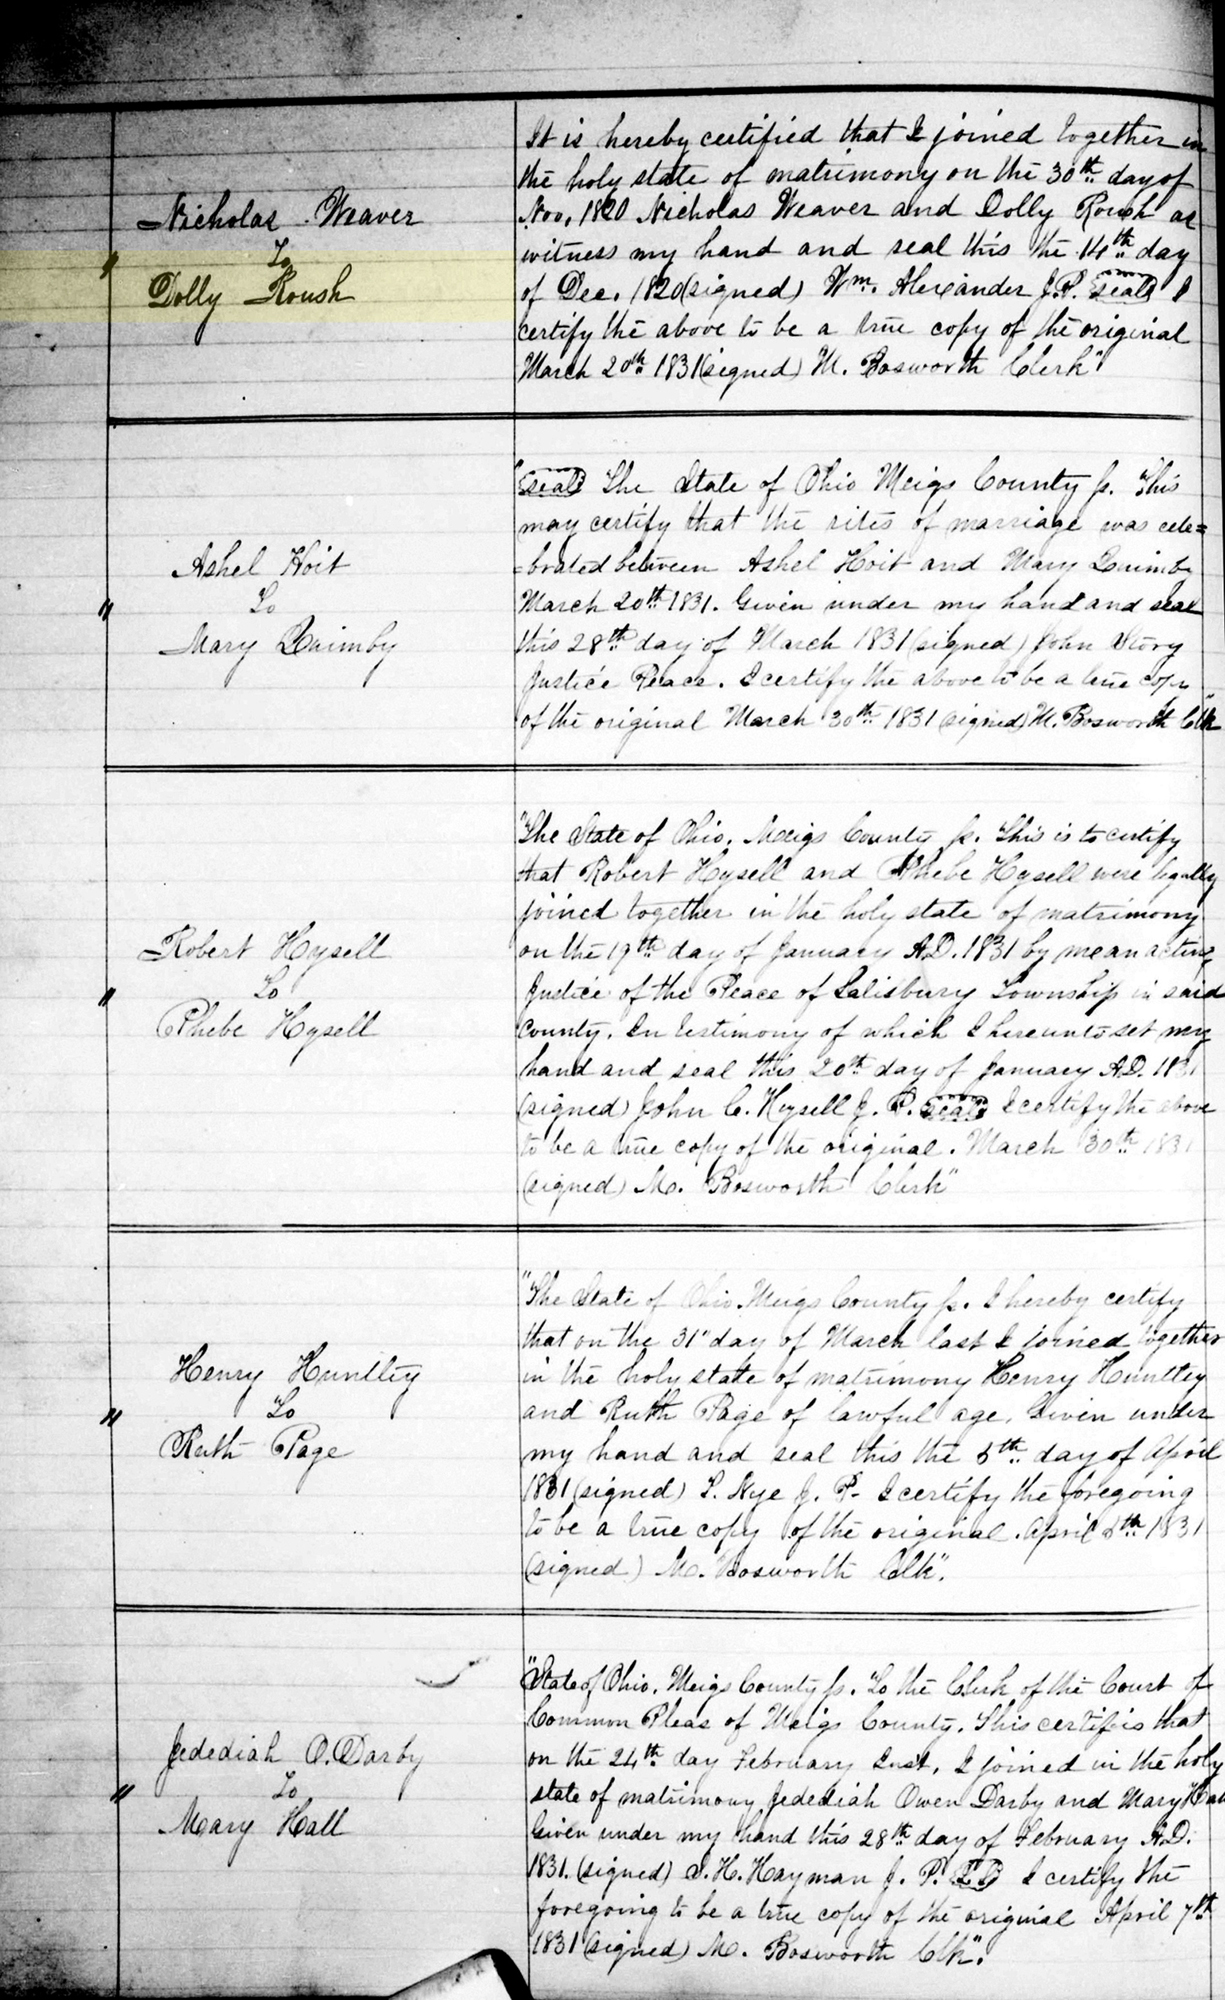 Nicholas Weaver
"
To
Dolly Roush
It is hereby certified that I joined together in
the holy state of matrimony on the 30th day of
Nov. 1820 Nicholas Weaver and Dolly Roush as
witness my hand and seal this the 14th day
of Dec. 1820 (signed) Wm. Alexander J.P. seal I
certify the above to be a true copy of the original
March 20th 1831 (signed) M. Bosworth Clerk"
Ashel Hoit
"
To
Mary Quimby
"seal The State of Ohio Meigs County ss. This
may certify that the rites of marriage was cele=
=brated between Ashel Hoit and Mary Quimby
March 20th 1831. Given under my hand and seal
this 28th day of March 1831 (signed) John Story
Justice Peace. I certify the above to be a true copy
of the original March 30th 1831 (signed) M. Bosworth Clk"
Robert Hysell
"
To
Phebe Hysell
"The State of Ohio. Meigs County ss. This is to certify
that Robert Hysell and Phebe Hysell were legally
joined together in the holy state of matrimony
on the 19th day of January A.D. 1831 by me an acting
Justice of the Peace of Salisbury Township in said
County. In testimony of which I hereunto set my
hand and seal this 20th day of January A.D. 1831
(signed) John C. Hysell J. P. seal I certify the above
to be a true copy of the original. March 30th 1831
(signed) M. Bosworth Clerk"
Henry Huntley
"
To
Ruth Page
"The State of Ohio. Meigs County ss. I hereby certify
that on the 31" day of March last I joined together
in the holy state of matrimony Henry Huntley
and Ruth Page of lawful age. Given under
my hand and seal this the 5th day of April
1831 (signed) L. Nye J. P. I certify the foregoing
to be a true copy of the original. April 5th 1831
(signed) M. Bosworth Clk".
Jedediah O. Darby
"
To
Mary Hall
"State of Ohio. Meigs County ss. To the Clerk of the Court of
Common Pleas of Meigs County. This certifies that
on the 24th day February Inst. I joined in the holy
state of matrimony Jedediah Owen Darby and Mary Hall
Given under my hand this 28th day of February A.D.
1831. (signed) S. H. Hayman J. P. I certify the
foregoing to be a true copy of the original April 7th
1831 (signed) M. Bosworth Clk".